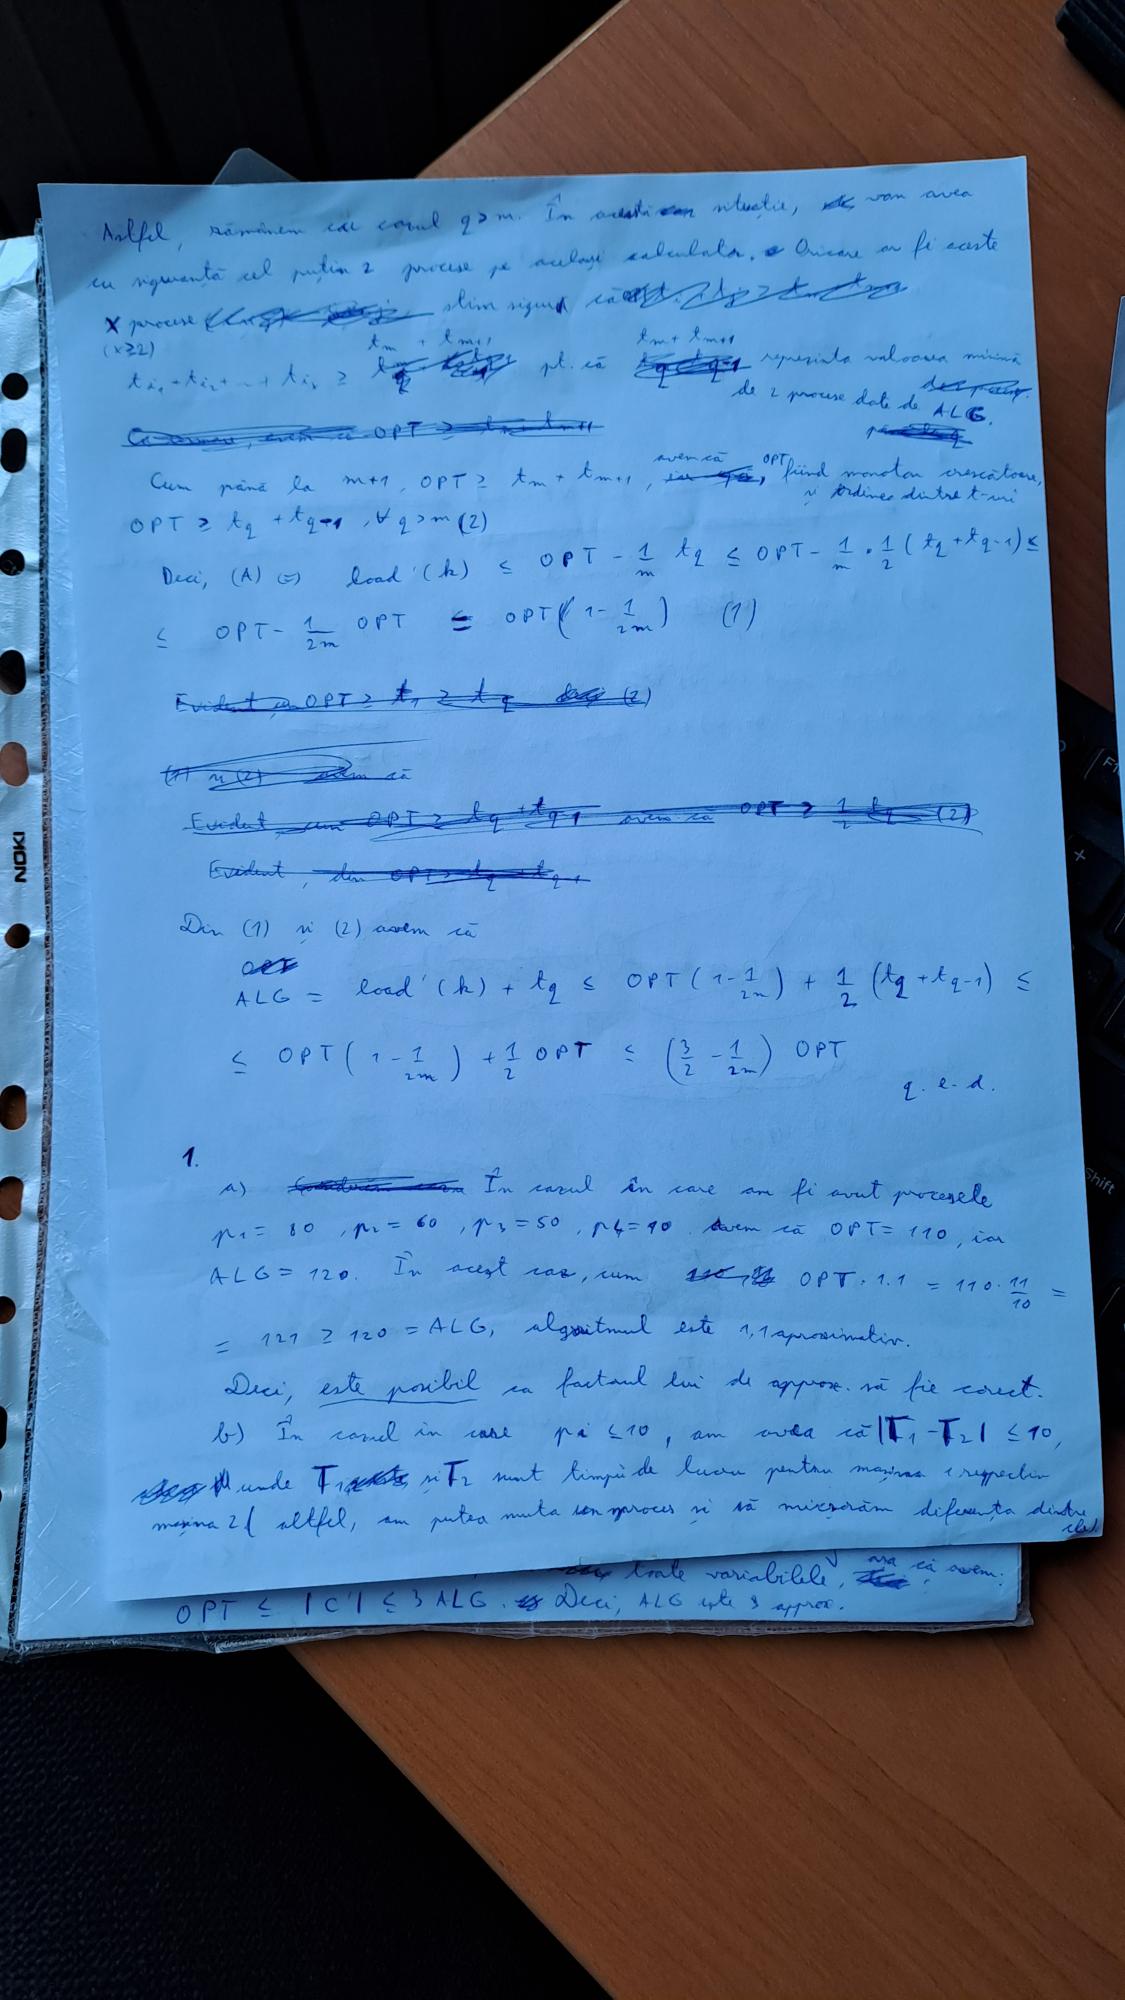 Astfel, rămânem cu cazul q > m. În această situație, vom avea
cu siguranță cel puțin 2 procese pe același calculator. Oricare ar fi aceste
x procese știm sigur că
(x≥2)
t_i1 + t_i2 + … + t_ix ≥ t_m + t_m+1 pt. că t_m + t_m+1 reprezintă valoarea minimă
de 2 procese date de ALG.
Cum până la m+1, OPT ≥ t_m + t_m+1, avem că OPT fiind monoton crescătoare,
și ordinea dintre t-uri
OPT ≥ t_q + t_q-1, ∀ q > m (2)
Deci, (A) ⇔ load'(k) ≤ OPT - 1/m t_q ≤ OPT - 1/m · 1/2 (t_q + t_q-1) ≤
≤ OPT - 1/2m OPT ≤ OPT (1 - 1/2m) (1)
Evident OPT ≥ t_1 ≥ t_q (2)
(1) și (2) avem că
Evident, cum OPT ≥ t_q + t_q-1 avem că OPT ≥ 1/2 t_q (2)
Evident, din OPT ≥ t_q + t_q-1
Din (1) și (2) avem că
OPT
ALG = load'(k) + t_q ≤ OPT (1 - 1/2m) + 1/2 (t_q + t_q-1) ≤
≤ OPT (1 - 1/2m) + 1/2 OPT ≤ (3/2 - 1/2m) OPT
q. e. d.
1.
a) În cazul în care am fi avut procesele
p1 = 80, p2 = 60, p3 = 50, p4 = 10 avem că OPT = 110, iar
ALG = 120. În acest caz, cum OPT · 1.1 = 110 · 11/10 =
= 121 ≥ 120 = ALG, algoritmul este 1,1 aproximativ.
Deci, este posibil ca factorul lui de aprox. să fie corect.
b) În cazul în care pi ≤ 10, am avea că |T1 - T2| ≤ 10,
unde T1 și T2 sunt timpii de lucru pentru mașina 1 respectiv
mașina 2 (altfel, am putea muta un proces și să micșorăm diferența dintre
ele).
toate variabilele, așa că avem:
OPT ≤ |C'| ≤ 3 ALG. Deci, ALG este 3 aprox.
NOKI
Shift